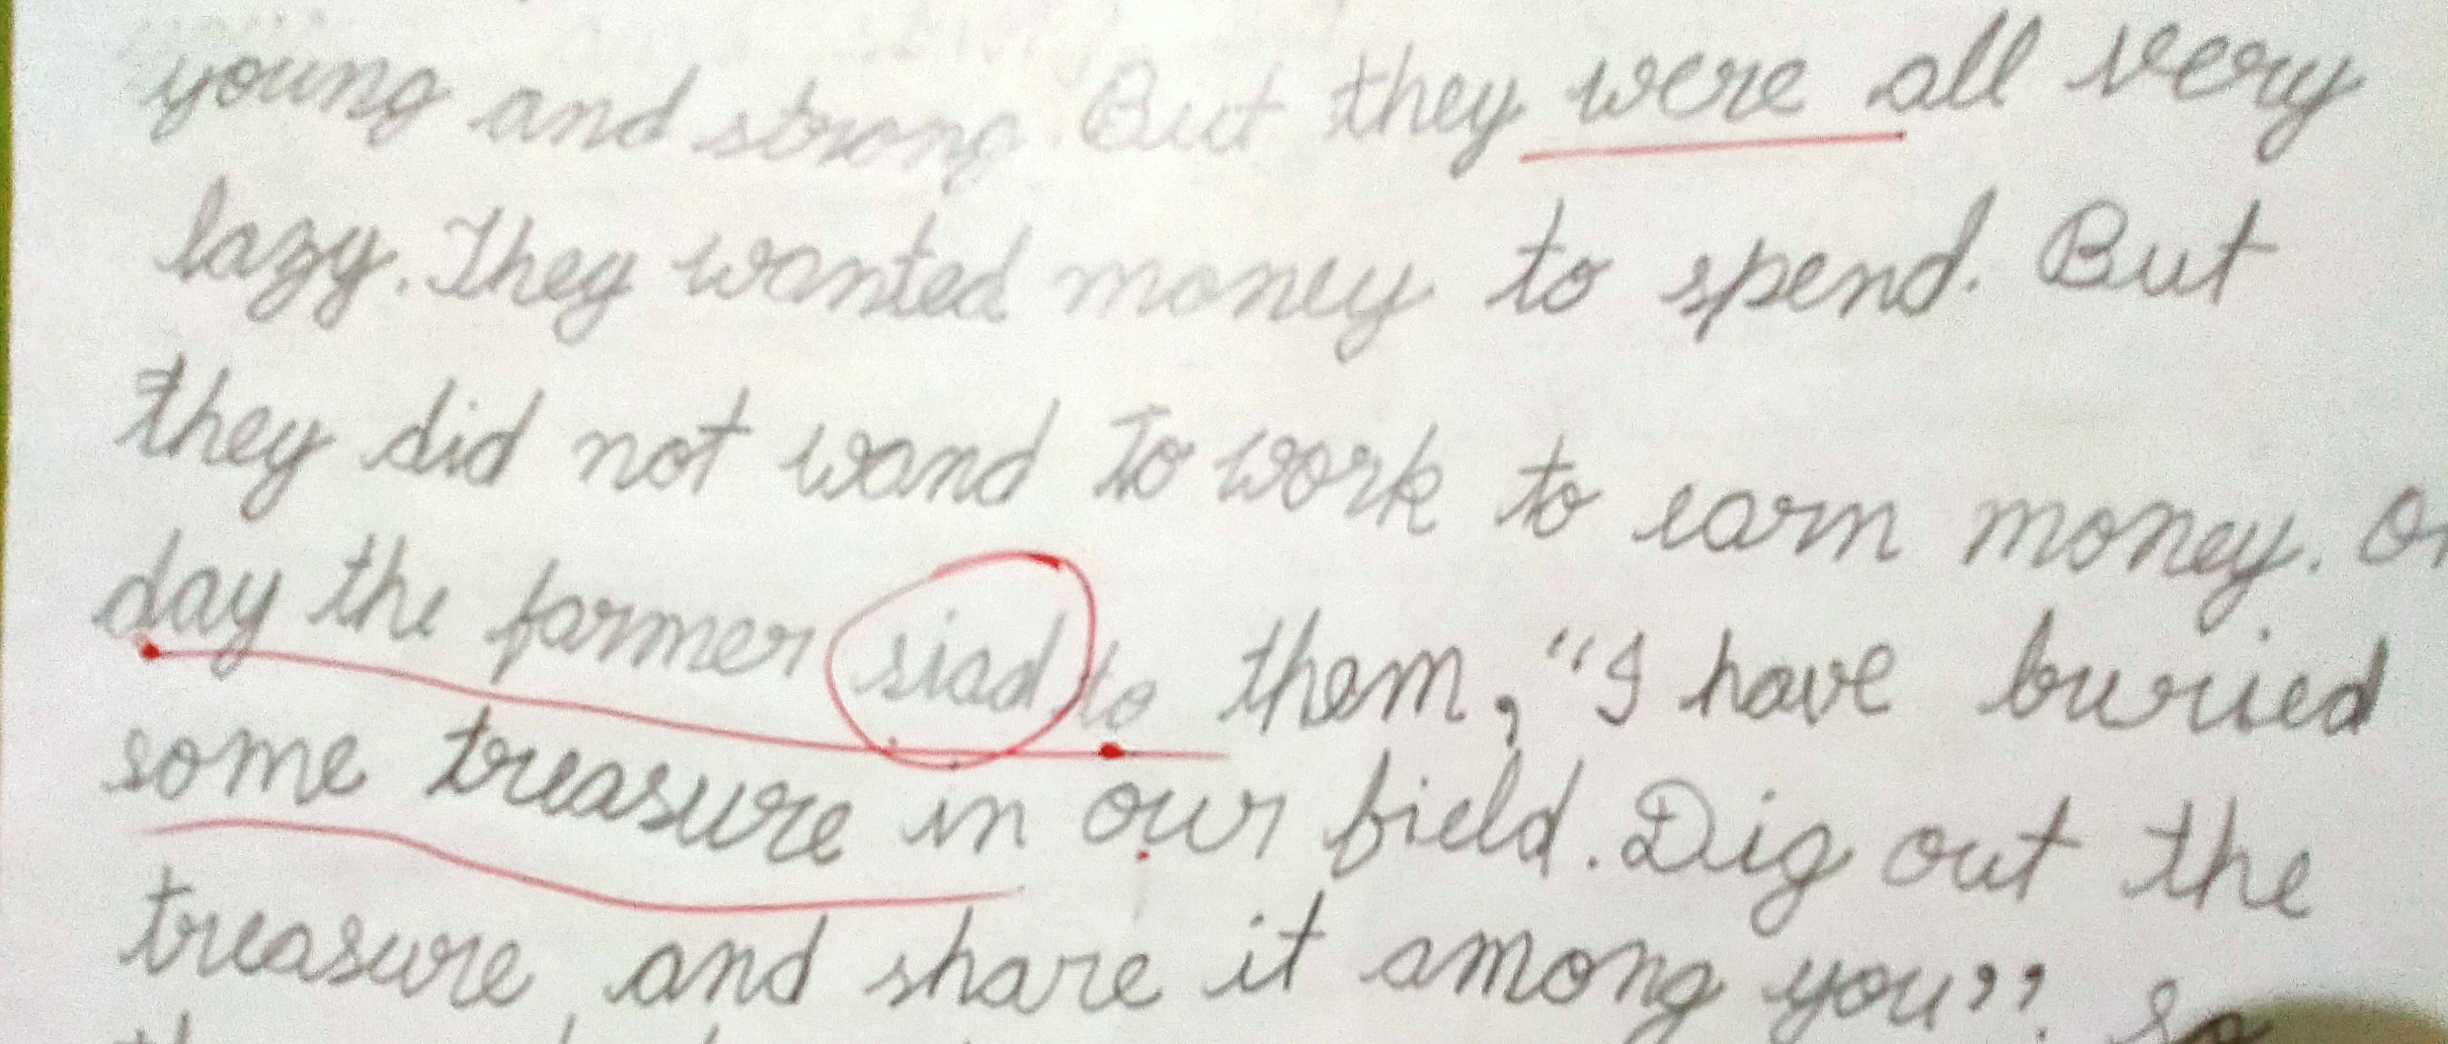 young and strong. But they were all very
lazy. They wanted money to spend. But
they did not wand to work to earn money.
day the farmer siad to them, "I have buried
some treasure in our field. Dig out the
treasure and share it among you". So